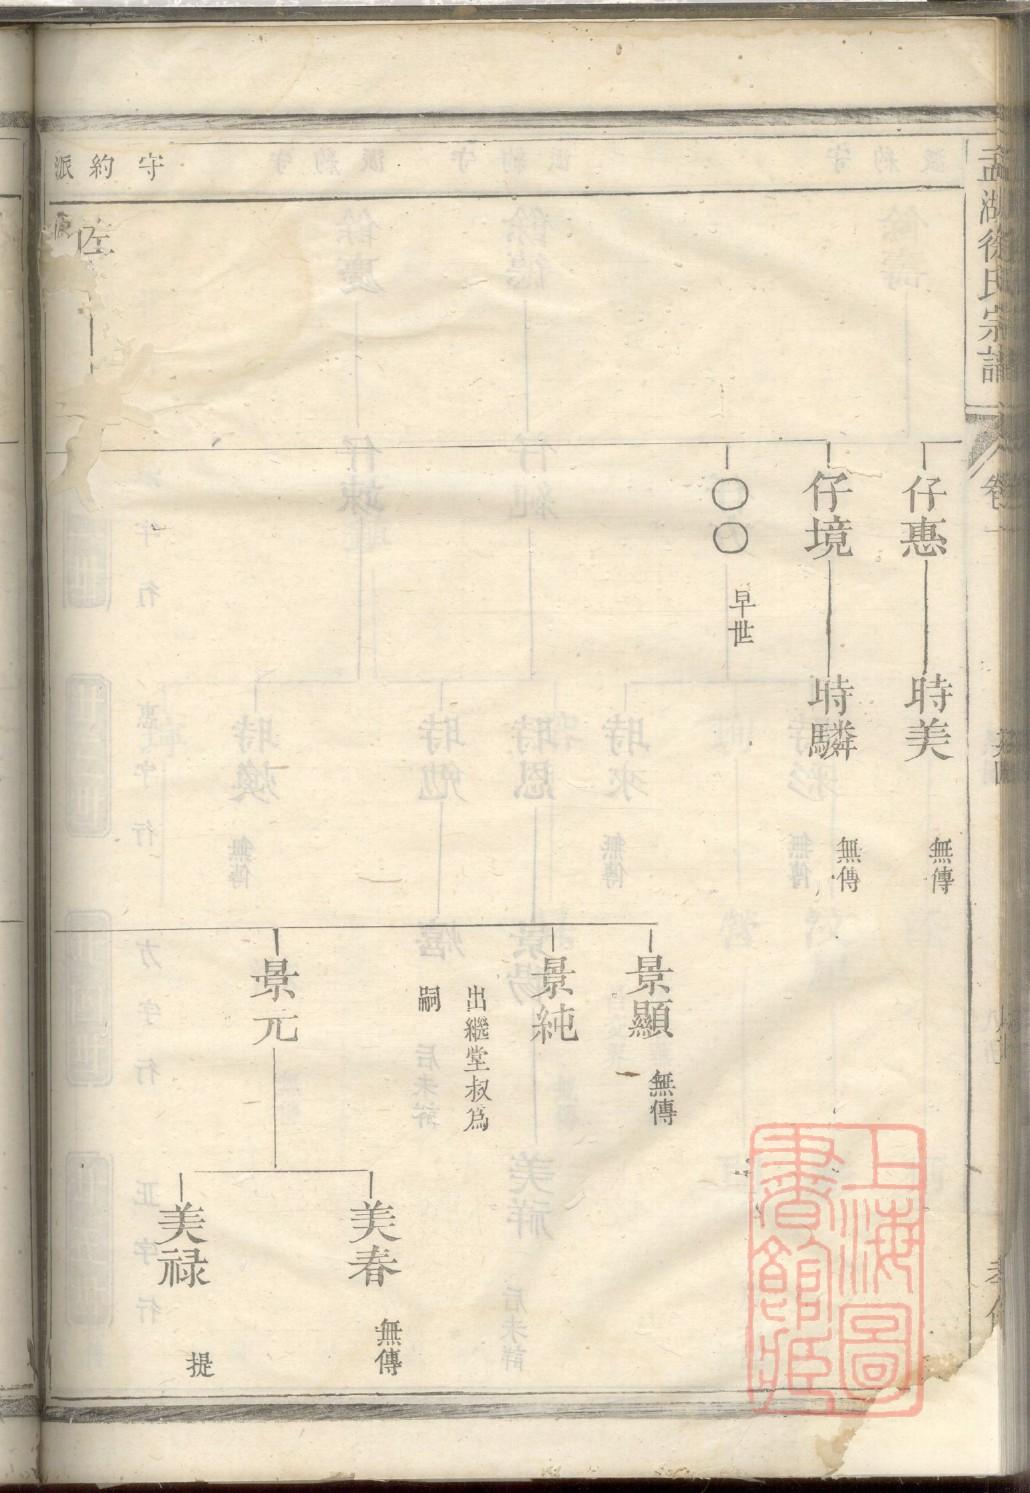 孟湖徐氏宗譜
卷一
守約派
佐
仔惠
仔境
〇〇
早世
時美
無傳
時驎
無傳
景顯
無傳
景純
出繼堂叔爲
嗣
景元
美春
無傳
美禄
提
上海圖
書館藏